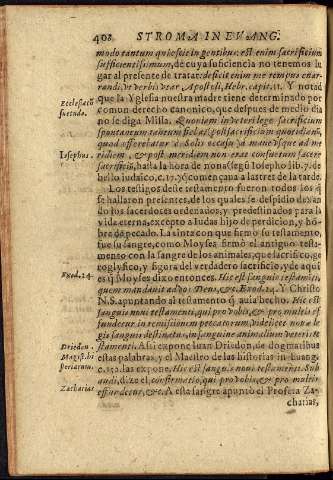 408 STROMA IN EVANG.
modo tantum quiescit ingentibus: est enim sacrificium
sufficientissimum, de cuya suficiencia no tenemos lu
gar al presente de tratar: deficit enim me tempus enar-
randi, ut verbis utar Apostoli, Hebr. capit. 11. Y notad
que la Yglesia nuestra madre tiene determinado por
comun derecho canonico, que despues de medio dia
no se diga Missa. Quoniam in veteri lege sacrificium
spontaneum tantum fiebat, post sacrificium quotidianũ,
quod offerebatur è Solis occasu
ridiem, & post meridiem non eras consuetum facere
sacrificiũ, hasta la hora de nona segũ Iosepho lib. 7. de
bello iudaico, c. 17. q̃ començaua a lastret de la tarde.
Los testigos deste testamento fueron todos los q̃
se hallaron presentes, de los quales se despidio dexan
do los sacerdotes ordenados, y predestinados para la
vida eterna, excepto a Iudas hijo de perdicion, y hõ-
bre de pecado. La tinta con que firmò su testamento,
fue su sangre, como Moysen firmò el antiguo testa-
mento con la sangre de los animales, que sacrificò, ge
roglyfico, y figura del verdadero sacrificio, y de aqui
es q̃ Moysen dixo entonces. Hic est sanguis testamẽti,
quem mandauit ad vos Deus, &c. Exod. 24. Y Christo
N.S. apuntando al testamento q̃ auia hecho. Hic est
sanguis noui testamenti, qui pro vobis, & pro multis ef
fundetur in remissionem peccatorum, videlicet nouæ le
gis sanguis destinatus, in sanguine animalium veteris te
stamenti. Assi expone Iuan Driedon, de dogmatibus
estas palabras, y el Maestro de las historias in Euang.
c. 150. las expone. Hic est sanguis noui testamẽti. Sub
audi, dize el, confirmatio, qui pro vobis, & pro multis
effundetur, &c. A esta sangre apuntò el Profeta Za-
charias,
Ecclesiæ cõ
suetudo.
Iosephus.
Exod. 24.
Driedon.
Magist. hi
storiarum.
Zacharias